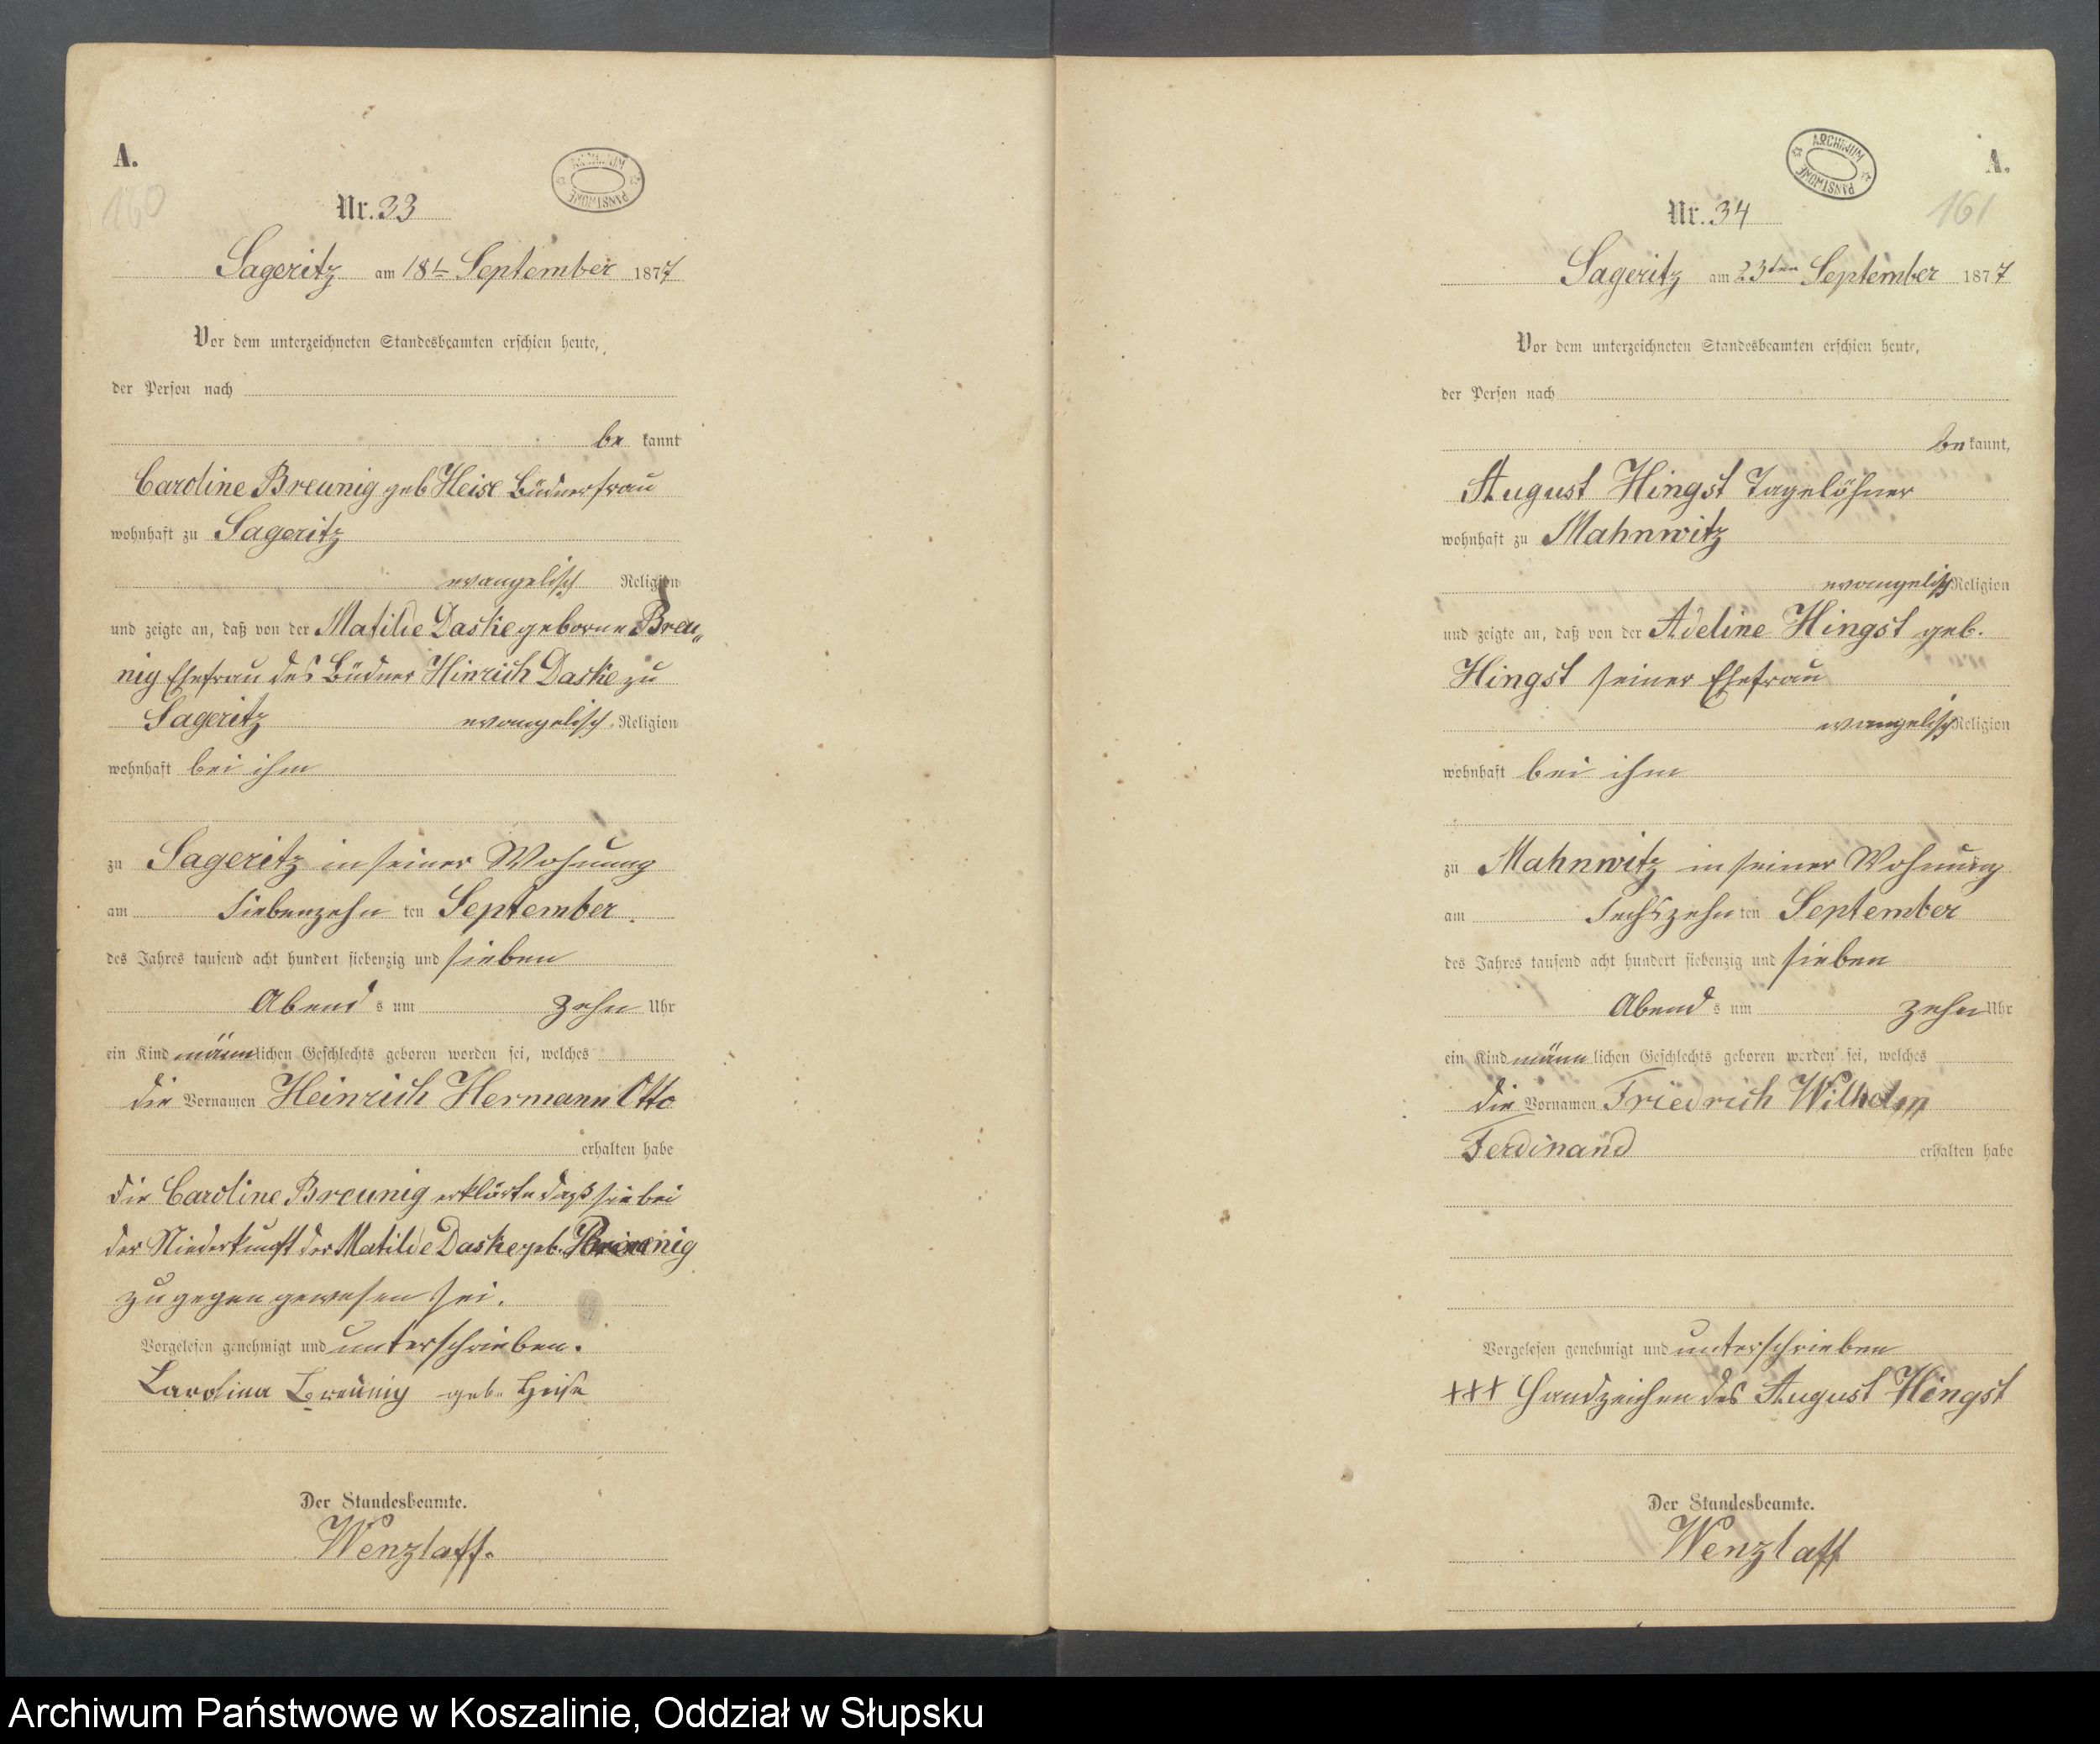 A.
160
ARCHIWUM PAŃSTWOWE
Nr. 33
Sageritz am 18t September 1877
Vor dem unterzeichneten Standesbeamten erschien heute,
der Person nach
be kannt
Caroline Breunig geb Heise Büdnerfrau
wohnhaft zu Sageritz
evangelisch Religion
und zeigte an, daß von der Matilde Daske geborne Breu„
nig Ehefrau des Büdner Hinrich Daske zu
Sageritz evangelisch Religion
wohnhaft bei ihm
zu Sageritz in seiner Wohnung
am siebenzehn ten September
des Jahres tausend acht hundert siebenzig und sieben
Abend s um zehn Uhr
ein Kind männlichen Geschlechts geboren worden sei, welches
die Vornamen Heinrich Hermann Otto
erhalten habe
die Caroline Breunig erklärte daß sie bei
der Niederkunft der Matilde Daske geb. Breunig
zugegen gewesen sei.
Vorgelesen genehmigt und unterschrieben.
Carolina Breünig geb. Heise
Der Standesbeamte.
Wenzlaff.
ARCHIWUM PAŃSTWOWE
A.
161
Nr. 34
Sageritz am 23ten September 1877
Vor dem unterzeichneten Standesbeamten erschien heute,
der Person nach
be kannt,
August Hingst Tagelöhner
wohnhaft zu Mahnwitz
evangelisch Religion
und zeigte an, daß von der Adeline Hingst geb.
Hingst seiner Ehefrau
evangelisch Religion
wohnhaft bei ihm
zu Mahnwitz in seiner Wohnung
am sechszehn ten September
des Jahres tausend acht hundert siebenzig und sieben
Abend s um zehn Uhr
ein Kind männlichen Geschlechts geboren worden sei, welches
die Vornamen Friedrich Wilhelm
Ferdinand erhalten habe
Vorgelesen genehmigt und unterschrieben
+++ Handzeichen des August Hingst
Der Standesbeamte.
Wenzlaff
Archiwum Państwowe w Koszalinie, Oddział w Słupsku